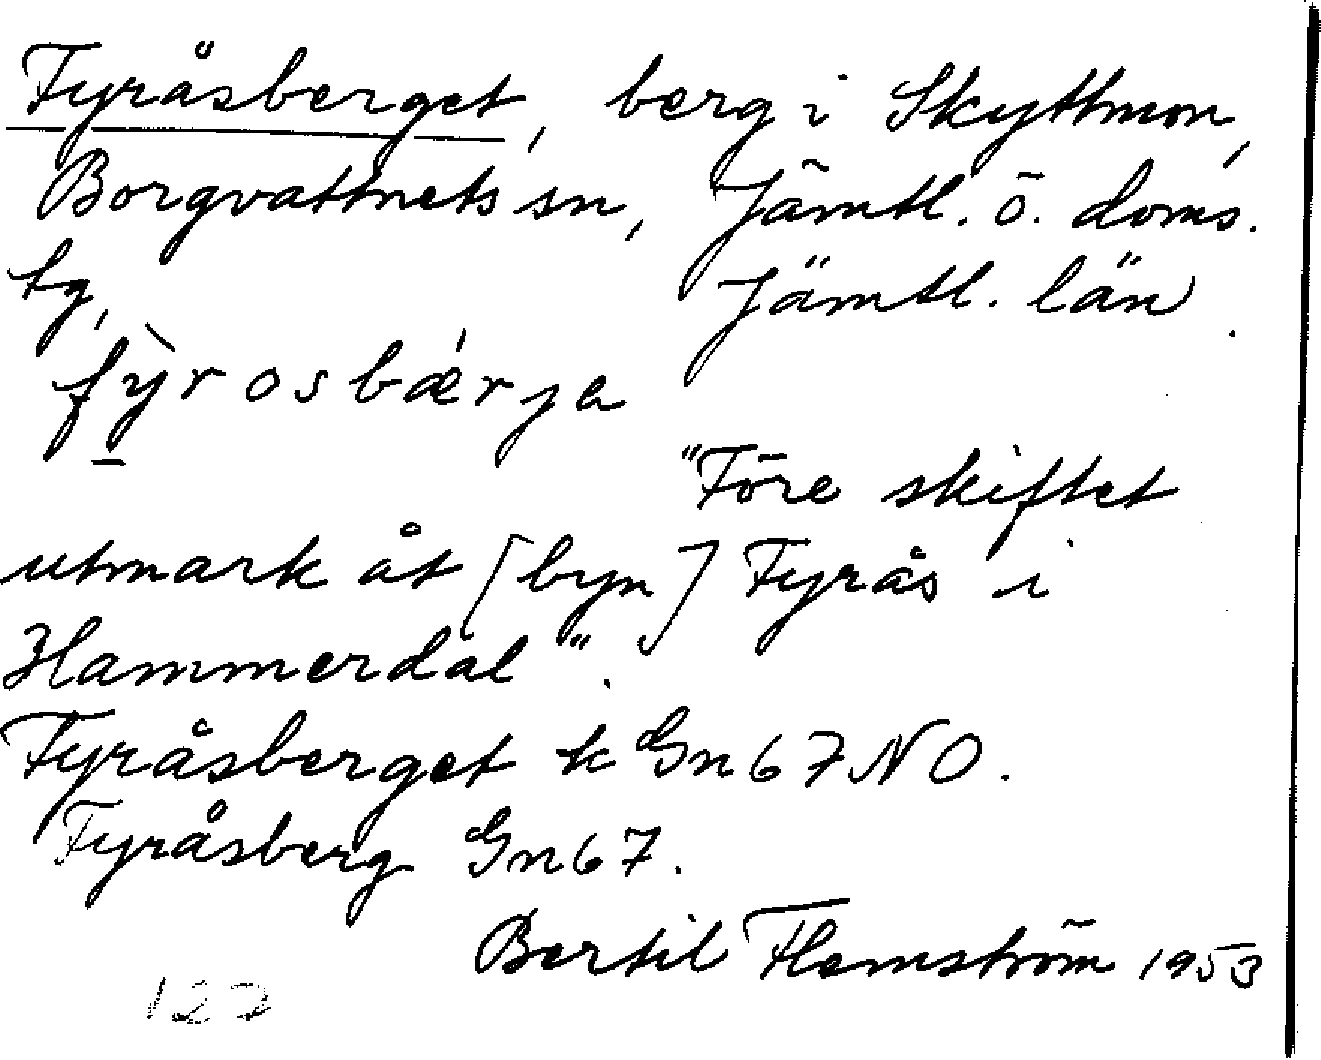 Fyråsberget, berg i Skyttmon,
Borgvattnets sn, Jämtl. ö. doms.
tg, Jämtl. län.
fỳ̠rosbǽrja
"Före skiftet
utmark åt [byn] Fyrås i
Hammerdal".
Fyråsberget k Gn67NO.
Fyråsberg Gn67.
Bertil Flemström 1953
122